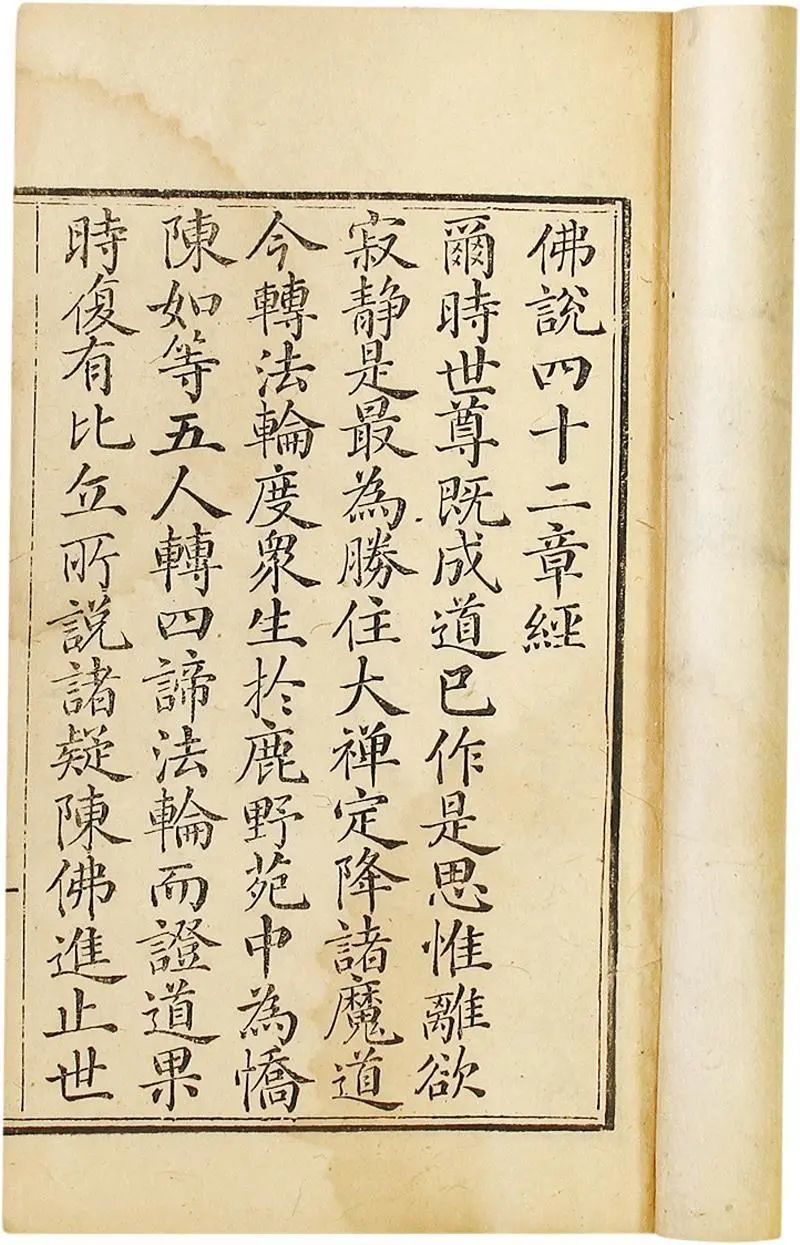 佛說四十二章經
爾時世尊既成道已作是思惟離欲
寂靜是最為勝住大禅定降諸魔道
今轉法輪度衆生於鹿野苑中為憍
陳如等五人轉四諦法輪而證道果
時復有比丘所說諸疑陳佛進止世